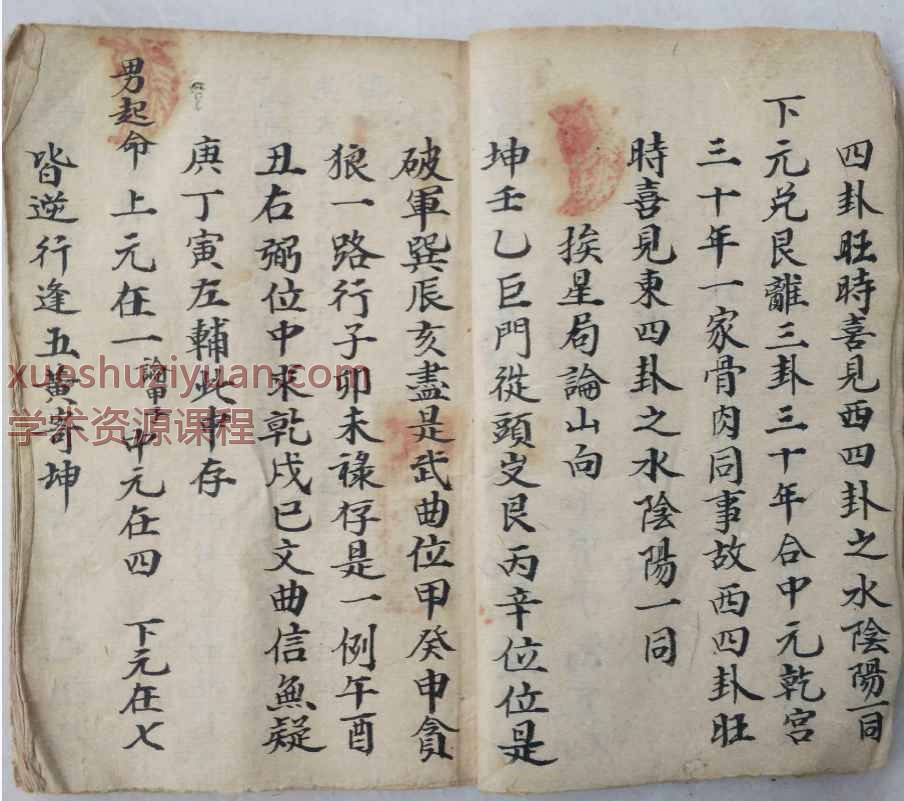 四卦旺時喜見西四卦之水陰陽一同
下元兑艮離三卦三十年合中元乾宮
三十年一家骨肉同事故西四卦旺
時喜見東四卦之水陰陽一同
挨星局論山向
坤壬乙巨門從頭出艮丙辛位位是
破軍巽辰亥盡是武曲位甲癸申貪
狼一路行子卯未祿存是一例午酉
丑右弼位中求乾戌巳文曲信無疑
庚丁寅左輔此中存
男起命 上元在一 中元在四 下元在七
皆逆行逢五黄寄坤
xueshuziyuan.com
学术资源课程